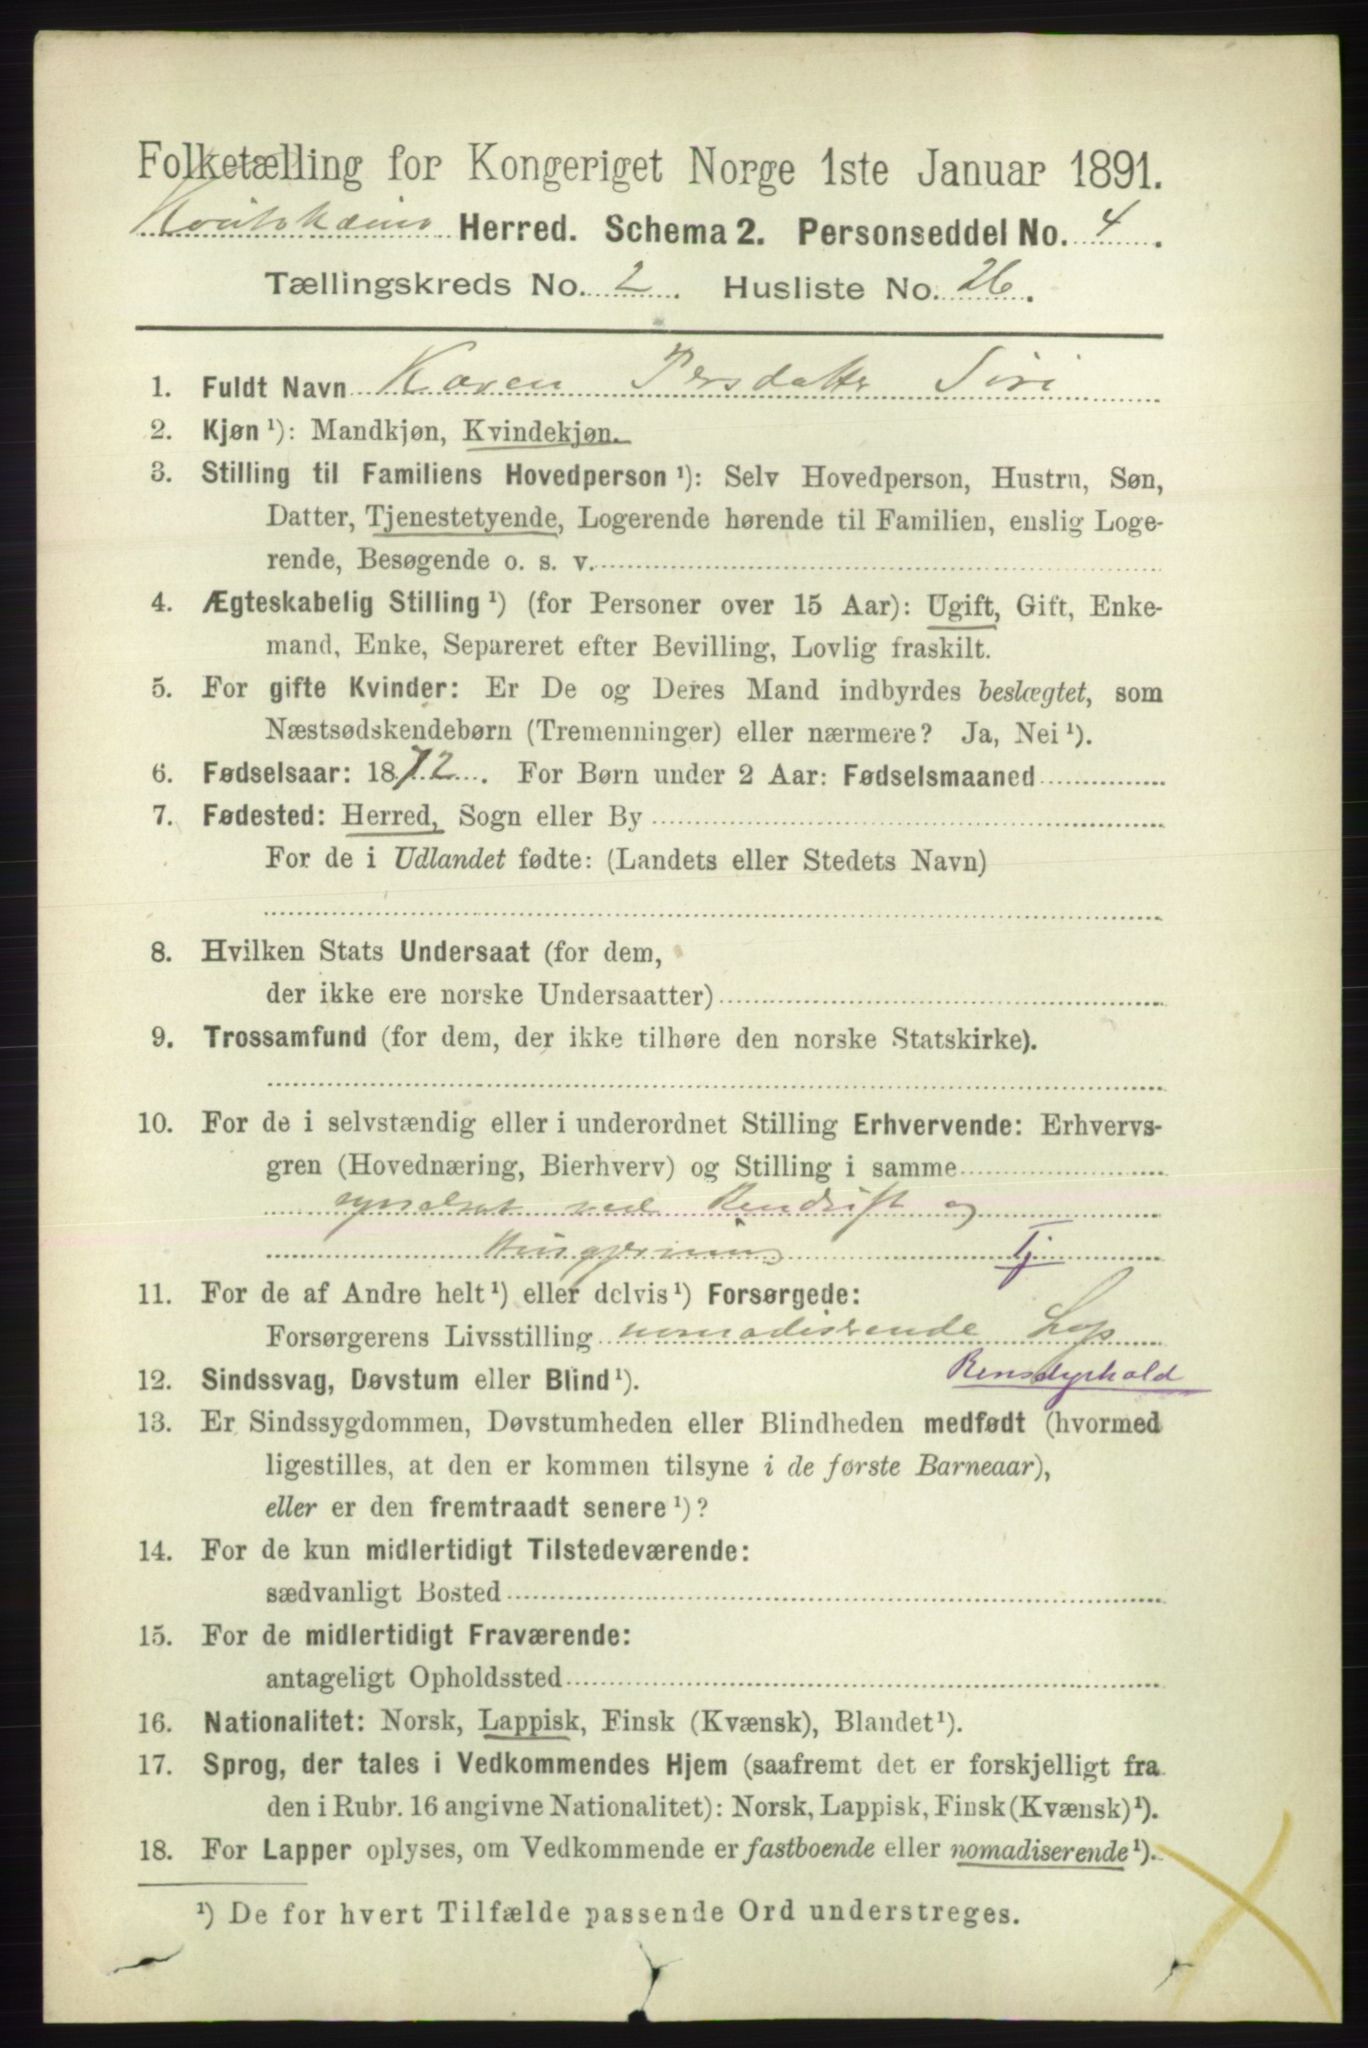 Folketælling for Kongeriget Norge 1ste Januar 1891.
Koutokeino Herred. Schema 2. Personseddel No. 4.
Tællingskreds No. 2. Husliste No. 26.
1. Fuldt Navn Karen Persdatter Siri
2. Kjøn¹): Mandkjøn, Kvindekjøn.
3. Stilling til Familiens Hovedperson¹): Selv Hovedperson, Hustru, Søn,
Datter, Tjenestetyende, Logerende hørende til Familien, enslig Loge-
rende, Besøgende o. s. v.
4. Ægteskabelig Stilling¹) (for Personer over 15 Aar): Ugift, Gift, Enke-
mand, Enke, Separeret efter Bevilling, Lovlig fraskilt.
5. For gifte Kvinder: Er De og Deres Mand indbyrdes beslægtet, som
Næstsødskendebørn (Tremenninger) eller nærmere? Ja, Nei¹).
6. Fødselsaar: 1872. For Børn under 2 Aar: Fødselsmaaned
7. Fødested: Herred, Sogn eller By
For de i Udlandet fødte: (Landets eller Stedets Navn)
8. Hvilken Stats Undersaat (for dem,
der ikke ere norske Undersaatter)
9. Trossamfund (for dem, der ikke tilhøre den norske Statskirke).
10. For de i selvstændig eller i underordnet Stilling Erhvervende: Erhvervs-
gren (Hovednæring, Bierhverv) og Stilling i samme
sysselsat ved Rendrift og
Husgjerning Tj
11. For de af Andre helt¹) eller delvis¹) Forsørgede:
Forsørgerens Livsstilling nomadiserende Lap
Rensdyrhold
12. Sindssvag, Døvstum eller Blind¹).
13. Er Sindssygdommen, Døvstumheden eller Blindheden medfødt (hvormed
ligestilles, at den er kommen tilsyne i de første Barneaar),
eller er den fremtraadt senere¹)?
14. For de kun midlertidigt Tilstedeværende:
sædvanligt Bosted
15. For de midlertidigt Fraværende:
antageligt Opholdssted
16. Nationalitet: Norsk, Lappisk, Finsk (Kvænsk), Blandet¹).
17. Sprog, der tales i Vedkommendes Hjem (saafremt det er forskjelligt fra
den i Rubr. 16 angivne Nationalitet): Norsk, Lappisk, Finsk (Kvænsk)¹).
18. For Lapper oplyses, om Vedkommende er fastboende eller nomadiserende¹).
¹) De for hvert Tilfælde passende Ord understreges.